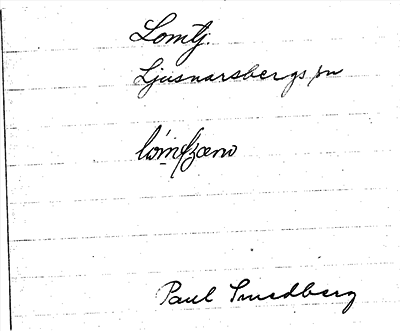 Lomtj.
Ljusnarsbergs sn
Paul Smedberg